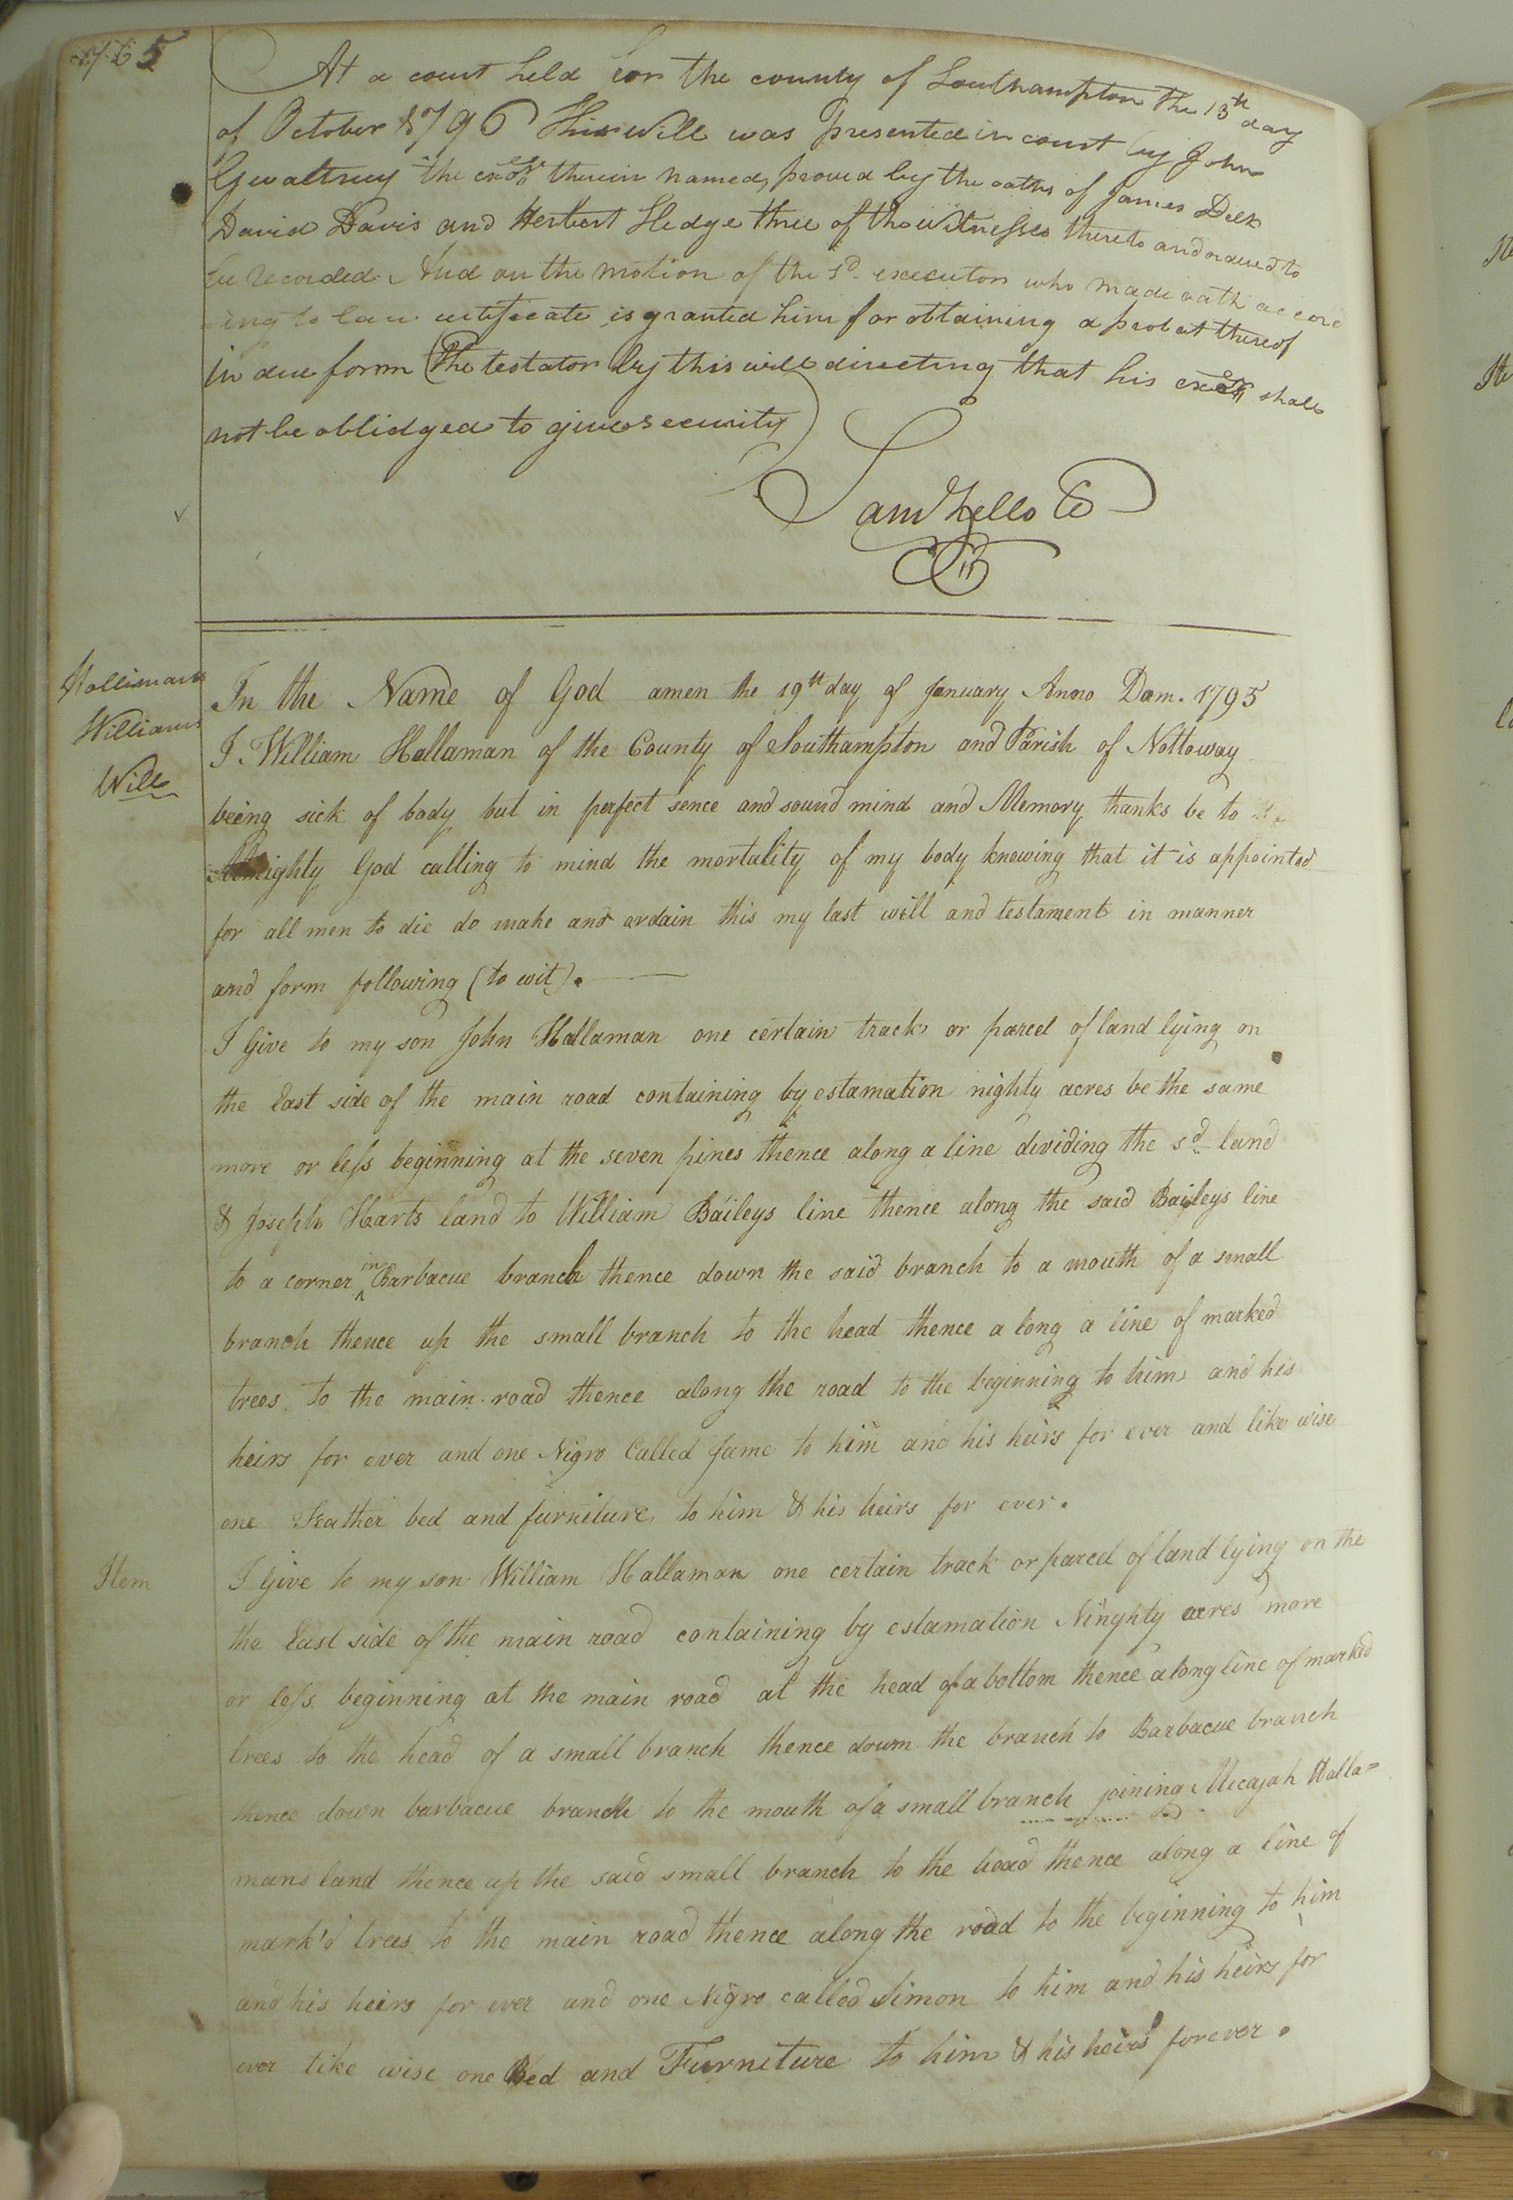 At a court held for the county of Southampton the 13th day
of October 1796 This will was presented in court by John
Gwaltney the exor therein named, proved by the oaths of James Delk
David Davis and Herbert Hedge three of the witnesses thereto and ordered to
be recorded And on the motion of the sd. executor who made oath accord
=ing to law certificate is granted him for obtaining a probat thereof
in due form (The testator by this will directing that his exor shall
not be oblidged to give security)
Saml Kello
Hollimans
Williams
Will
In the Name of God amen the 19th day of January Anno Dom. 1795
I William Hallaman of the County of Southampton and Parish of Nottoway
being sick of body but in perfect sence and sound mind and Memory thanks be to
Almighty God calling to mind the mortality of my body knowing that it is appointed
for all men to die do make and ordain this my last will and testament in manner
and form following (to wit).
I Give to my son John Hallaman one certain track or parcel of land lying on
the East side of the main road containing by estamation nighty acres be the same
more or less beginning at the seven pines thence along a line dividing the sd. land
& Joseph Harts land to William Baileys line thence along the said Baileys line
to a corner in Barbacue branch thence down the said branch to a mouth of a small
branch thence up the small branch to the head thence a long a line of marked
trees to the main road thence along the road to the beginning to him and his
heirs for ever and one Nigro Called Jame to him and his heirs for ever and like wise
one Feather bed and furniture to him & his heirs for ever.
Item I Give to my son William Hallaman one certain track or parcel of land lying on the
the East side of the main road containing by estamation Ninghty acres more
or less beginning at the main road at the head of a bottom thence along line of marked
trees to the head of a small branch thence down the branch to Barbacue branch
thence down barbacue branch to the mouth of a small branch joining Micajah Halla=
mans land thence up the said small branch to the head thence along a line of
mark'd trees to the main road thence along the road to the beginning to him
and his heirs for ever and one Nigro called Simon to him and his heirs for
ever like wise one Bed and Furniture to him & his heirs forever.